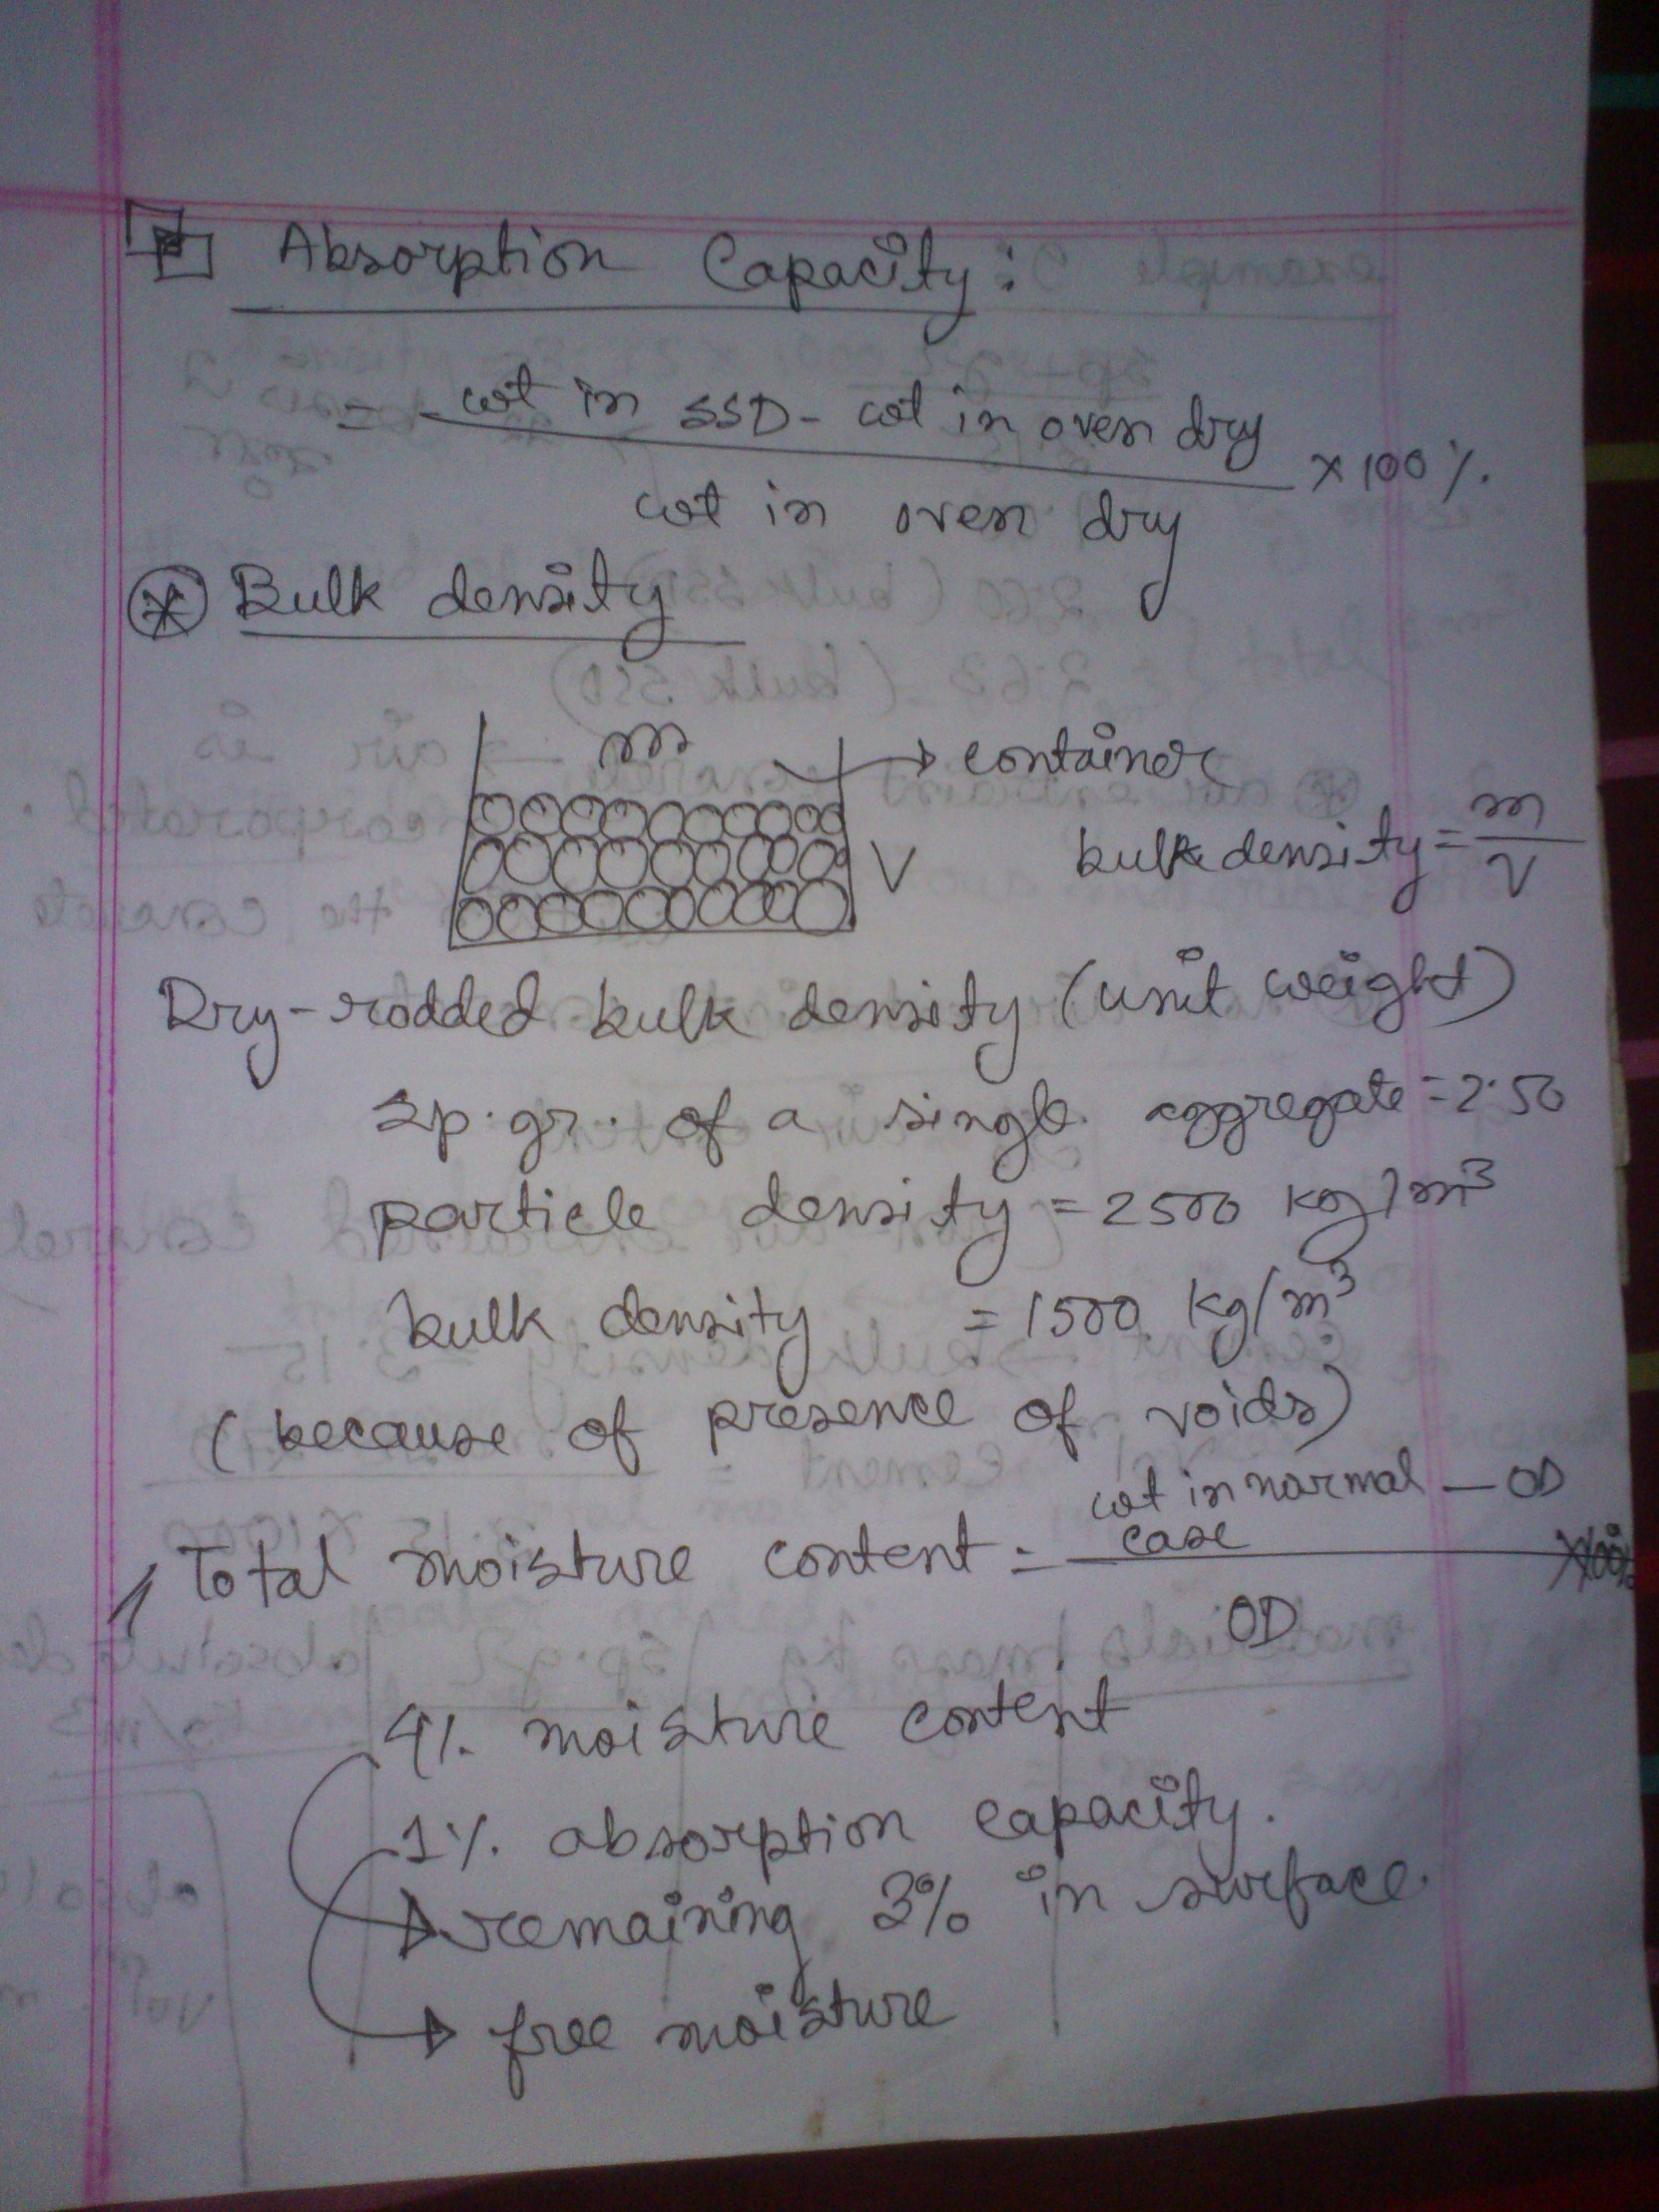 Absorption Capacity:
= wt in SSD - wt in oven dry / wt in oven dry × 100%.
Bulk density
m
→ container
V
bulk density = m / V
Dry-rodded bulk density (unit weight)
sp. gr. of a single aggregate = 2.50
particle density = 2500 kg/m³
bulk density = 1500 kg/m³
(because of presence of voids)
Total moisture content = wt in normal case - OD / OD ×100%
4%. moisture content
1%. absorption capacity.
remaining 3% in surface.
free moisture